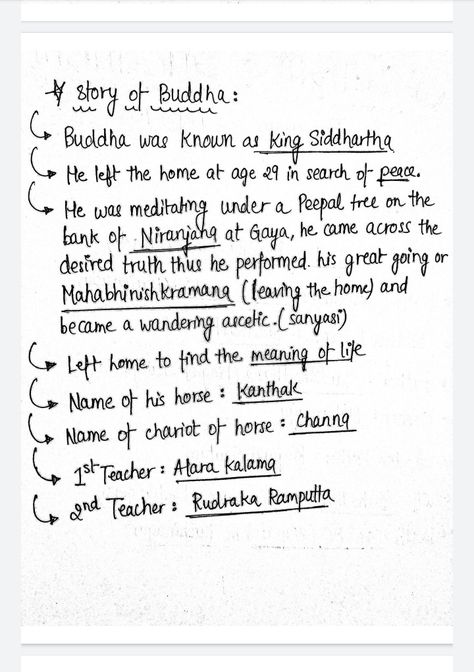 * Story of Buddha:
↳ Buddha was known as King Siddhartha
↳ He left the home at age 29 in search of peace.
↳ He was meditating under a Peepal tree on the
bank of Niranjana at Gaya, he came across the
desired truth thus he performed. his great going or
Mahabhinishkramana (leaving the home) and
became a wandering ascetic. (sanyasi)
↳ Left home to find the meaning of life
↳ Name of his horse : Kanthak
↳ Name of chariot of horse : Channa
↳ 1st Teacher : Alara Kalama
↳ 2nd Teacher : Rudraka Ramputta